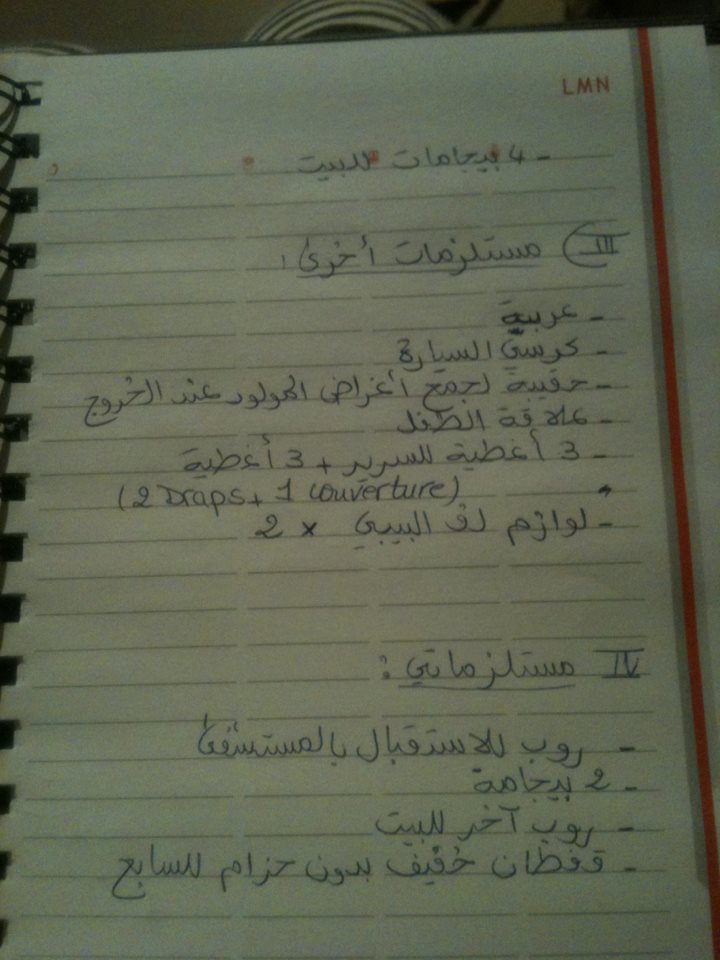 LMN
- 4 بيجامات للبيت
III) مستلزمات أخرى :
- عربية
- كرسي السيارة
- حقيبة لجمع أغراض المولود عند الخروج
- علاقة الطفل
- 3 أغطية للسرير + 3 أغطية
(2 Draps + 1 couverture)
- لوازم لف البيبي × 2
IV مستلزماتي :
- روب للاستقبال بالمستشفى
- 2 بيجامة
- روب آخر للبيت
- قفطان خفيف بدون حزام للسابع